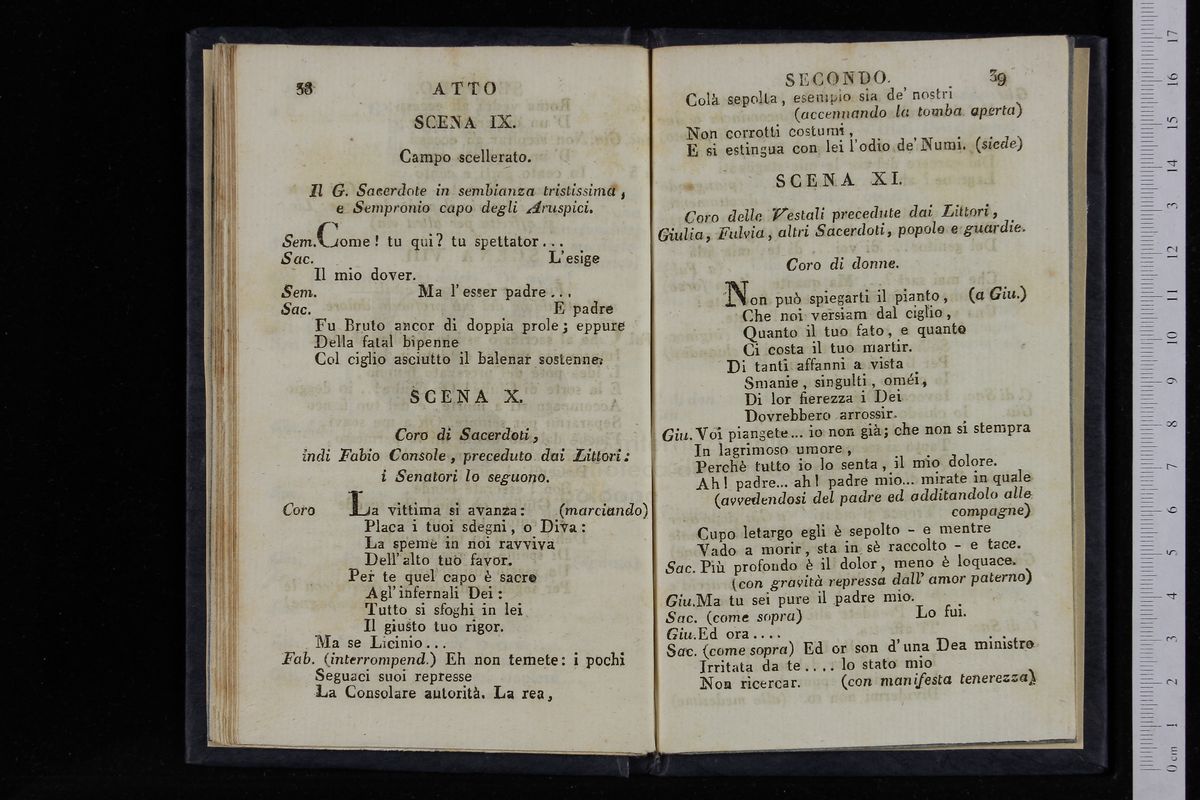 38 ATTO
SCENA IX.
Campo scellerato.
Il G. Sacerdote in sembianza tristissima,
e Sempronio capo degli Aruspici.
Sem. Come! tu qui? tu spettator...
Sac. L'esige
Il mio dover.
Sem. Ma l'esser padre...
Sac. E padre
Fu Bruto ancor di doppia prole; eppure
Della fatal bipenne
Col ciglio asciutto il balenar sostenne.
SCENA X.
Coro di Sacerdoti,
indi Fabio Console, preceduto dai Littori:
i Senatori lo seguono.
Coro La vittima si avanza: (marciando)
Placa i tuoi sdegni, o Diva:
La speme in noi ravviva
Dell'alto tuo favor.
Per te quel capo è sacro
Agl'infernali Dei:
Tutto si sfoghi in lei
Il giusto tuo rigor.
Ma se Licinio...
Fab. (interrompend.) Eh non temete: i pochi
Seguaci suoi represse
La Consolare autorità. La rea,
SECONDO. 39
Colà sepolta, esempio sia de' nostri
(accennando la tomba aperta)
Non corrotti costumi,
E si estingua con lei l'odio de' Numi. (siede)
SCENA XI.
Coro delle Vestali precedute dai Littori,
Giulia, Fulvia, altri Sacerdoti, popolo e guardie.
Coro di donne.
Non può spiegarti il pianto, (a Giu.)
Che noi versiam dal ciglio,
Quanto il tuo fato, e quanto
Ci costa il tuo martir.
Di tanti affanni a vista
Smanie, singulti, oméi,
Di lor fierezza i Dei
Dovrebbero arrossir.
Giu. Voi piangete... io non già; che non si stempra
In lagrimoso umore,
Perchè tutto io lo senta, il mio dolore.
Ah! padre... ah! padre mio... mirate in quale
(avvedendosi del padre ed additandolo alle
compagne)
Cupo letargo egli è sepolto - e mentre
Vado a morir, sta in sè raccolto - e tace.
Sac. Più profondo è il dolor, meno è loquace.
(con gravità repressa dall' amor paterno)
Giu. Ma tu sei pure il padre mio.
Sac. (come sopra) Lo fui.
Giu. Ed ora....
Sac. (come sopra) Ed or son d'una Dea ministro
Irritata da te.... lo stato mio
Non ricercar. (con manifesta tenerezza)
0 cm 1 2 3 4 5 6 7 8 9 10 11 12 13 14 15 16 17